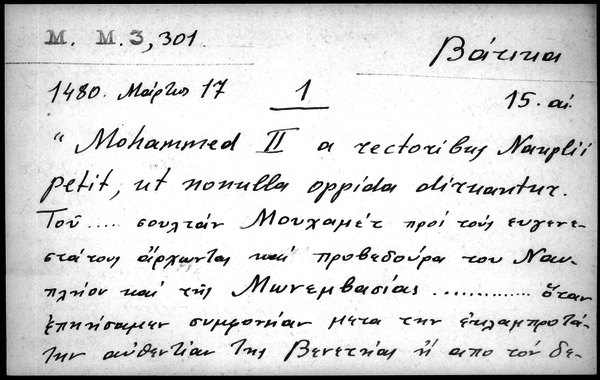 M. M. 3, 301.
Βάτικα
1480. Μάρτιος 17
1
15. αἰ.
"Mohammed II a rectoribus Nauplii
petit, ut nonulla oppida diruantur.
Τοῦ ..... σουλτάν Μουχαμέτ πρός τούς ευγενε-
στάτους ἄρχωντας καί προβεδούρα του Ναυ-
πλήου καί τῆς Μωνεμβασίας ............. ὅταν
ἐπηήσαμεν συμφονήαν μετα την ἐκλαμπροτά-
την αὐθεντίαν της Βενετηάς ἤ απο τόν δε-